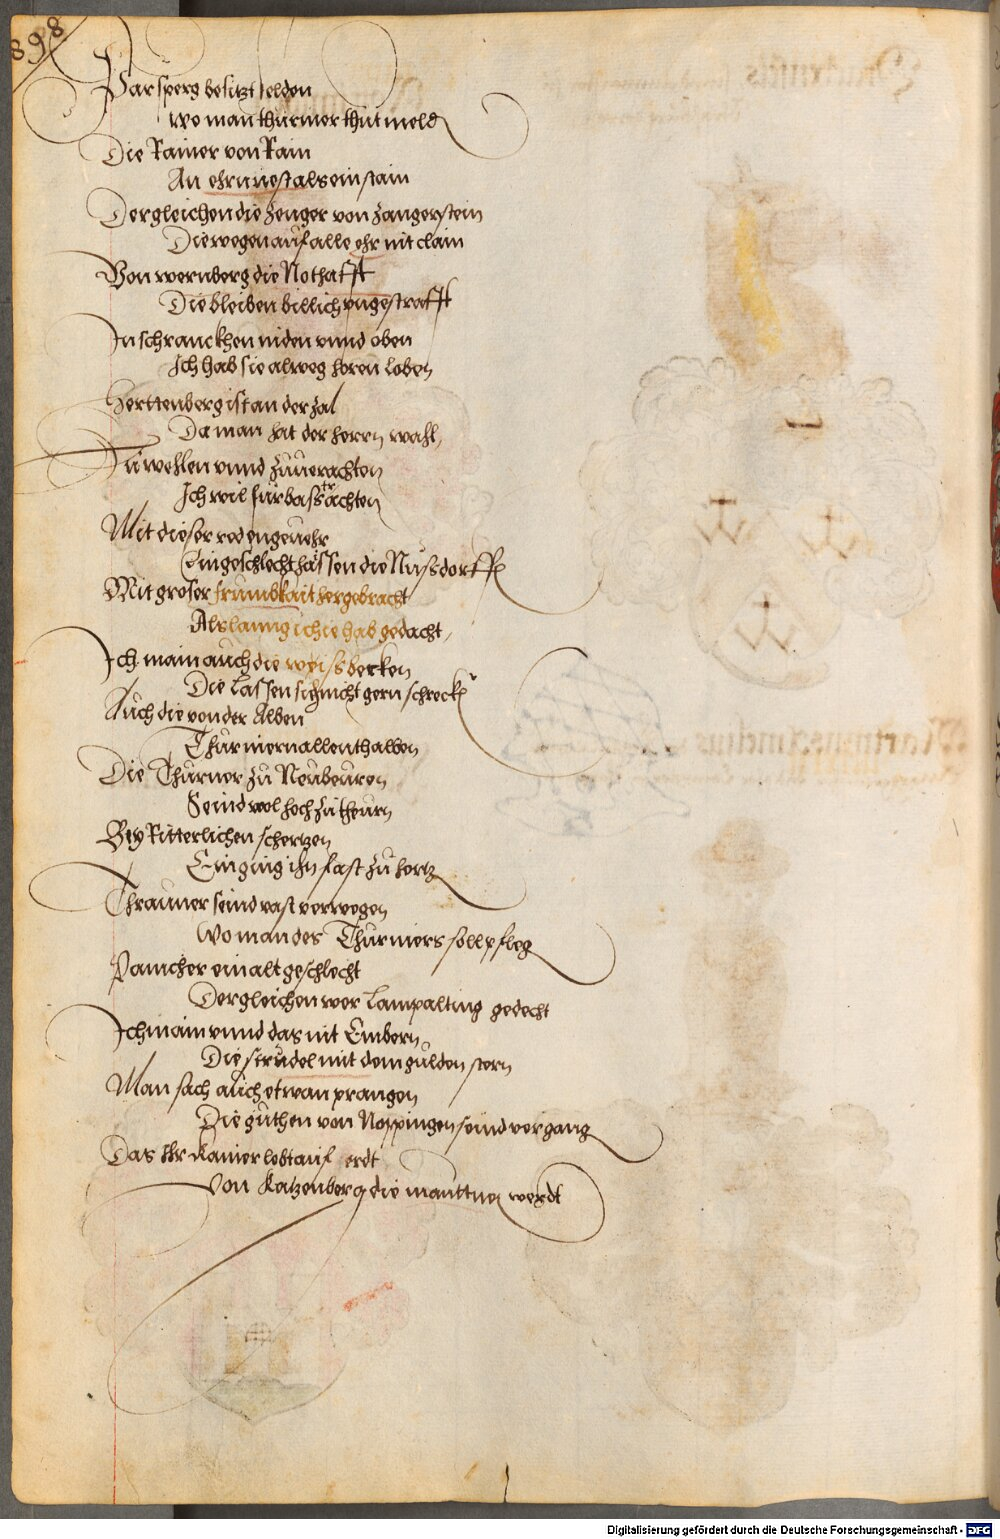 898
Parsperg besitzt selden
Wo man thurnier thut meld
Die Rainer von Rain
An ehrn uest als ein stain
Dergleichen die Zenger von Zangerstein
Die wegen auf alle ehr nit clain
Von wernberg die Nothafft
Die bleiben billich vngestrafft
In schranckhen niden vnnd oben
Ich hab sie alweg horen loben
Herttenberg ist an der zal
Da man hat der herrn wahl
Zu wehlen vnnd zuuerachten
Ich wil fürbass trachten
Mit dieser red engeuehr
Ein geschlecht hassen die Nussdorffe
Mit groser frumbkait hergebracht
Als lanng ich ie hab gedacht
Ich main auch die weissbecken
Die lassen sich nicht gern schreck
Auch die von der Alben
Thurniern allenthalben
Die Thurner zu Neubeuren
Seind wol hoch zu theurn
Bey Ritterlichen schertzen
Ein ging ihn fast zu hertz
Thrauner seind vast verwegen
Wo man des Thurniers soll pfleg
Paincher ein alt geschlecht
Dergleichen wer Lampalting gedecht
Ich main vnnd das nit Embern
Die strudel mit dem gulden stern
Man sach auch etwan prangen
Die guthen von Noppingen seind vergang
Das Ihr kainer lebt auf erdt
Von Katzenberg die mauttner werdt
Digitalisierung gefördert durch die Deutsche Forschungsgemeinschaft - DFG